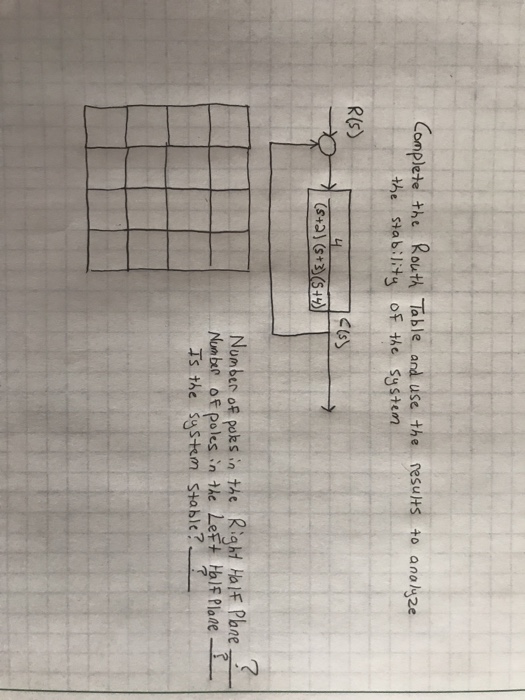 Complete the Routh Table and use the results to analyze
the stability of the system
R(s)
4
(s+2)(s+3)(s+4)
C(s)
Number of poles in the Right Half Plane ?
Number of poles in the Left Half Plane ?
Is the system stable? ?